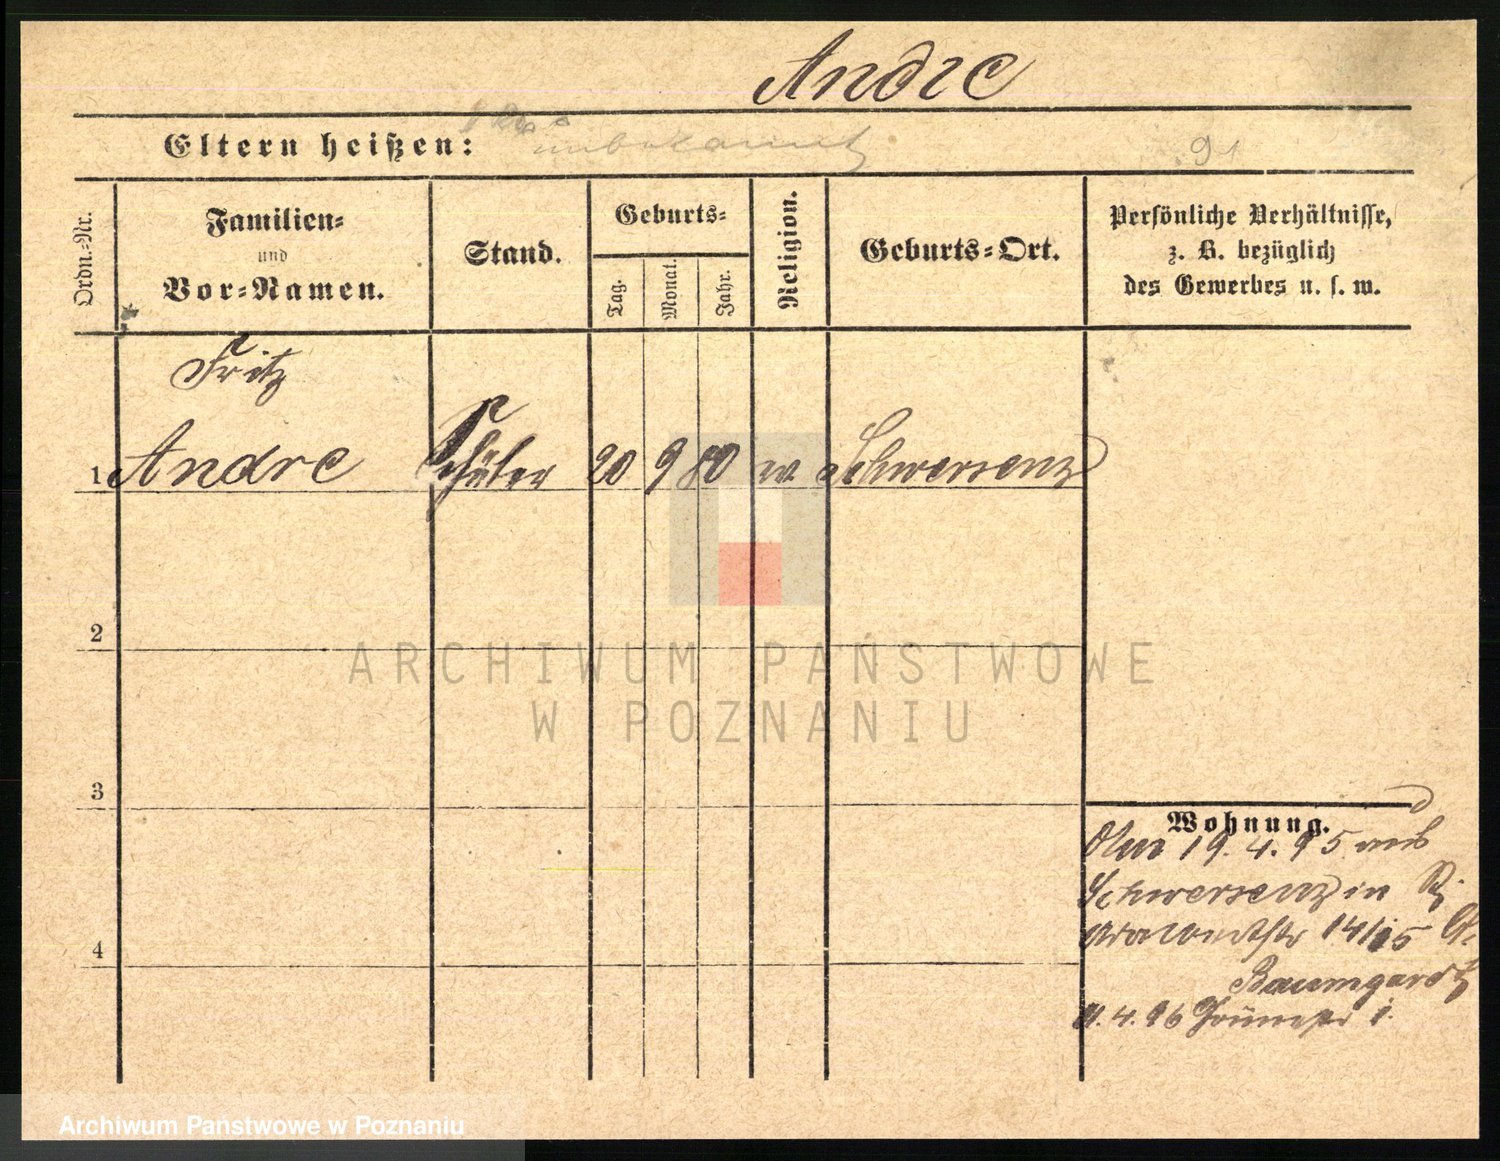 Andre
Eltern heißen: unbekannt 91
Ordn.-Nr.
Familien-
und
Vor-Namen.
Stand.
Geburts-
Tag.
Monat.
Jahr.
Religion.
Geburts-Ort.
Persönliche Verhältnisse,
z. B. bezüglich
des Gewerbes u. s. w.
Fritz
1 Andre Schüler 20 9 80 Schwersenz
2
ARCHIWUM PAŃSTWOWE
W POZNANIU
3
Wohnung.
19. 4. 95 aus
Schwersenz in
14/15
Baumgardt
4
4. 96
Archiwum Państwowe w Poznaniu